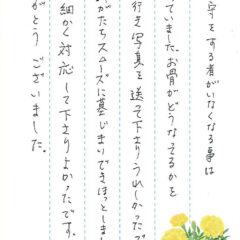 守をする者がいなくなる事は
ていました。お骨がどうなるかを
行き写真を送って下さりうれしかったで
がたちスムーズに墓じまいできほっとしまし
細かく対応して下さりよかったです。
がとうございました。